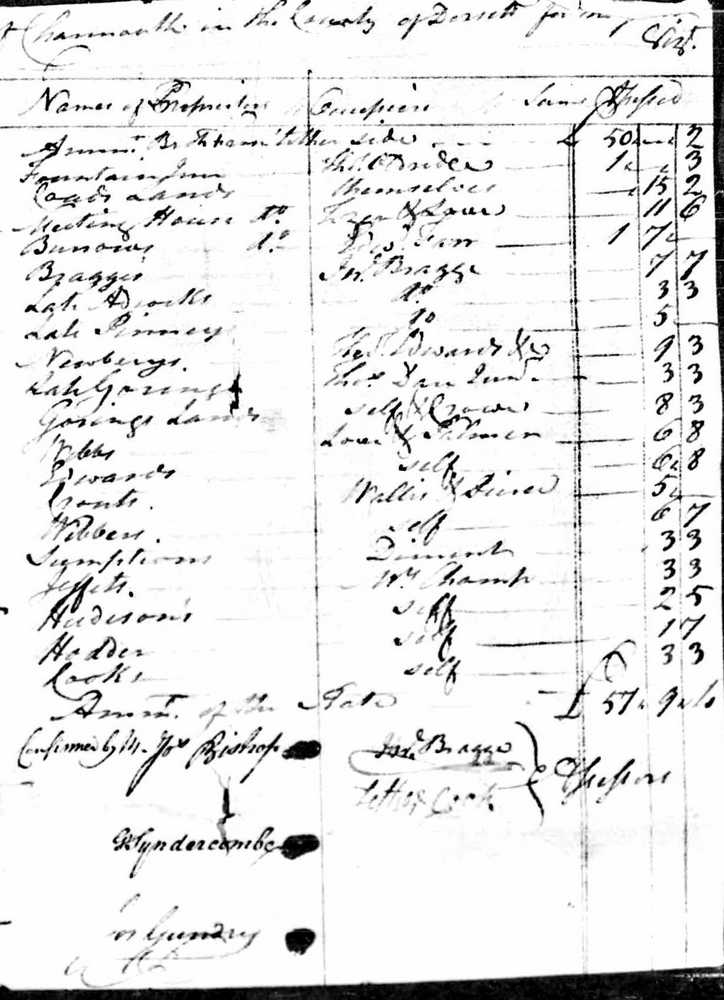 Charmouth in the County of Dorsett for
Vizt.
Names of Proprietors Occupiers Sums Assessed
Ammt. Brot from t'other side £ 50 " — " 2
Fountain Inn Bridge 1 " " 3
Coads Lands themselves " 15 2
Meeting House Do. & Love 11 6
Burrows do. Edwd. Farr 1 7 "
Braggs Jno. Bragge 7 7
Late Adcocks do 3 3
Late Pinneys do 5 —
Newberys. Edwards & Co 9 3
Late Gorings Thos. Dare 3 3
Gorings Lands self & Crowe 8 3
Webbs Love & 6 8
Edwards self 6 8
Wallis & 5 " —
Webbers. self 6 7
Symptions Diment 3 3
Wm. Champ 3 3
self 2 5
Hodder self 1 7
Cooks self 3 3
Ammt. of the Rate £ 57 " 9 "
Confirmed by us. Jos Bishop
Bragge
Cook } Assessors
Wyndercombe
Gundry